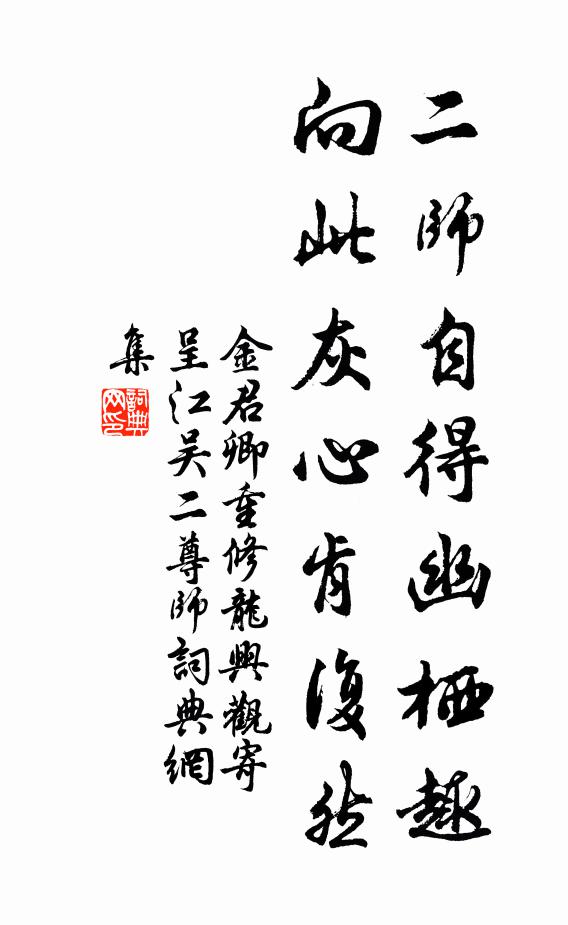 二師自得幽栖趣
向此灰心肯復然
金君卿重修龍興觀寄
呈江吴二尊師詞典網
集
詞典
网印